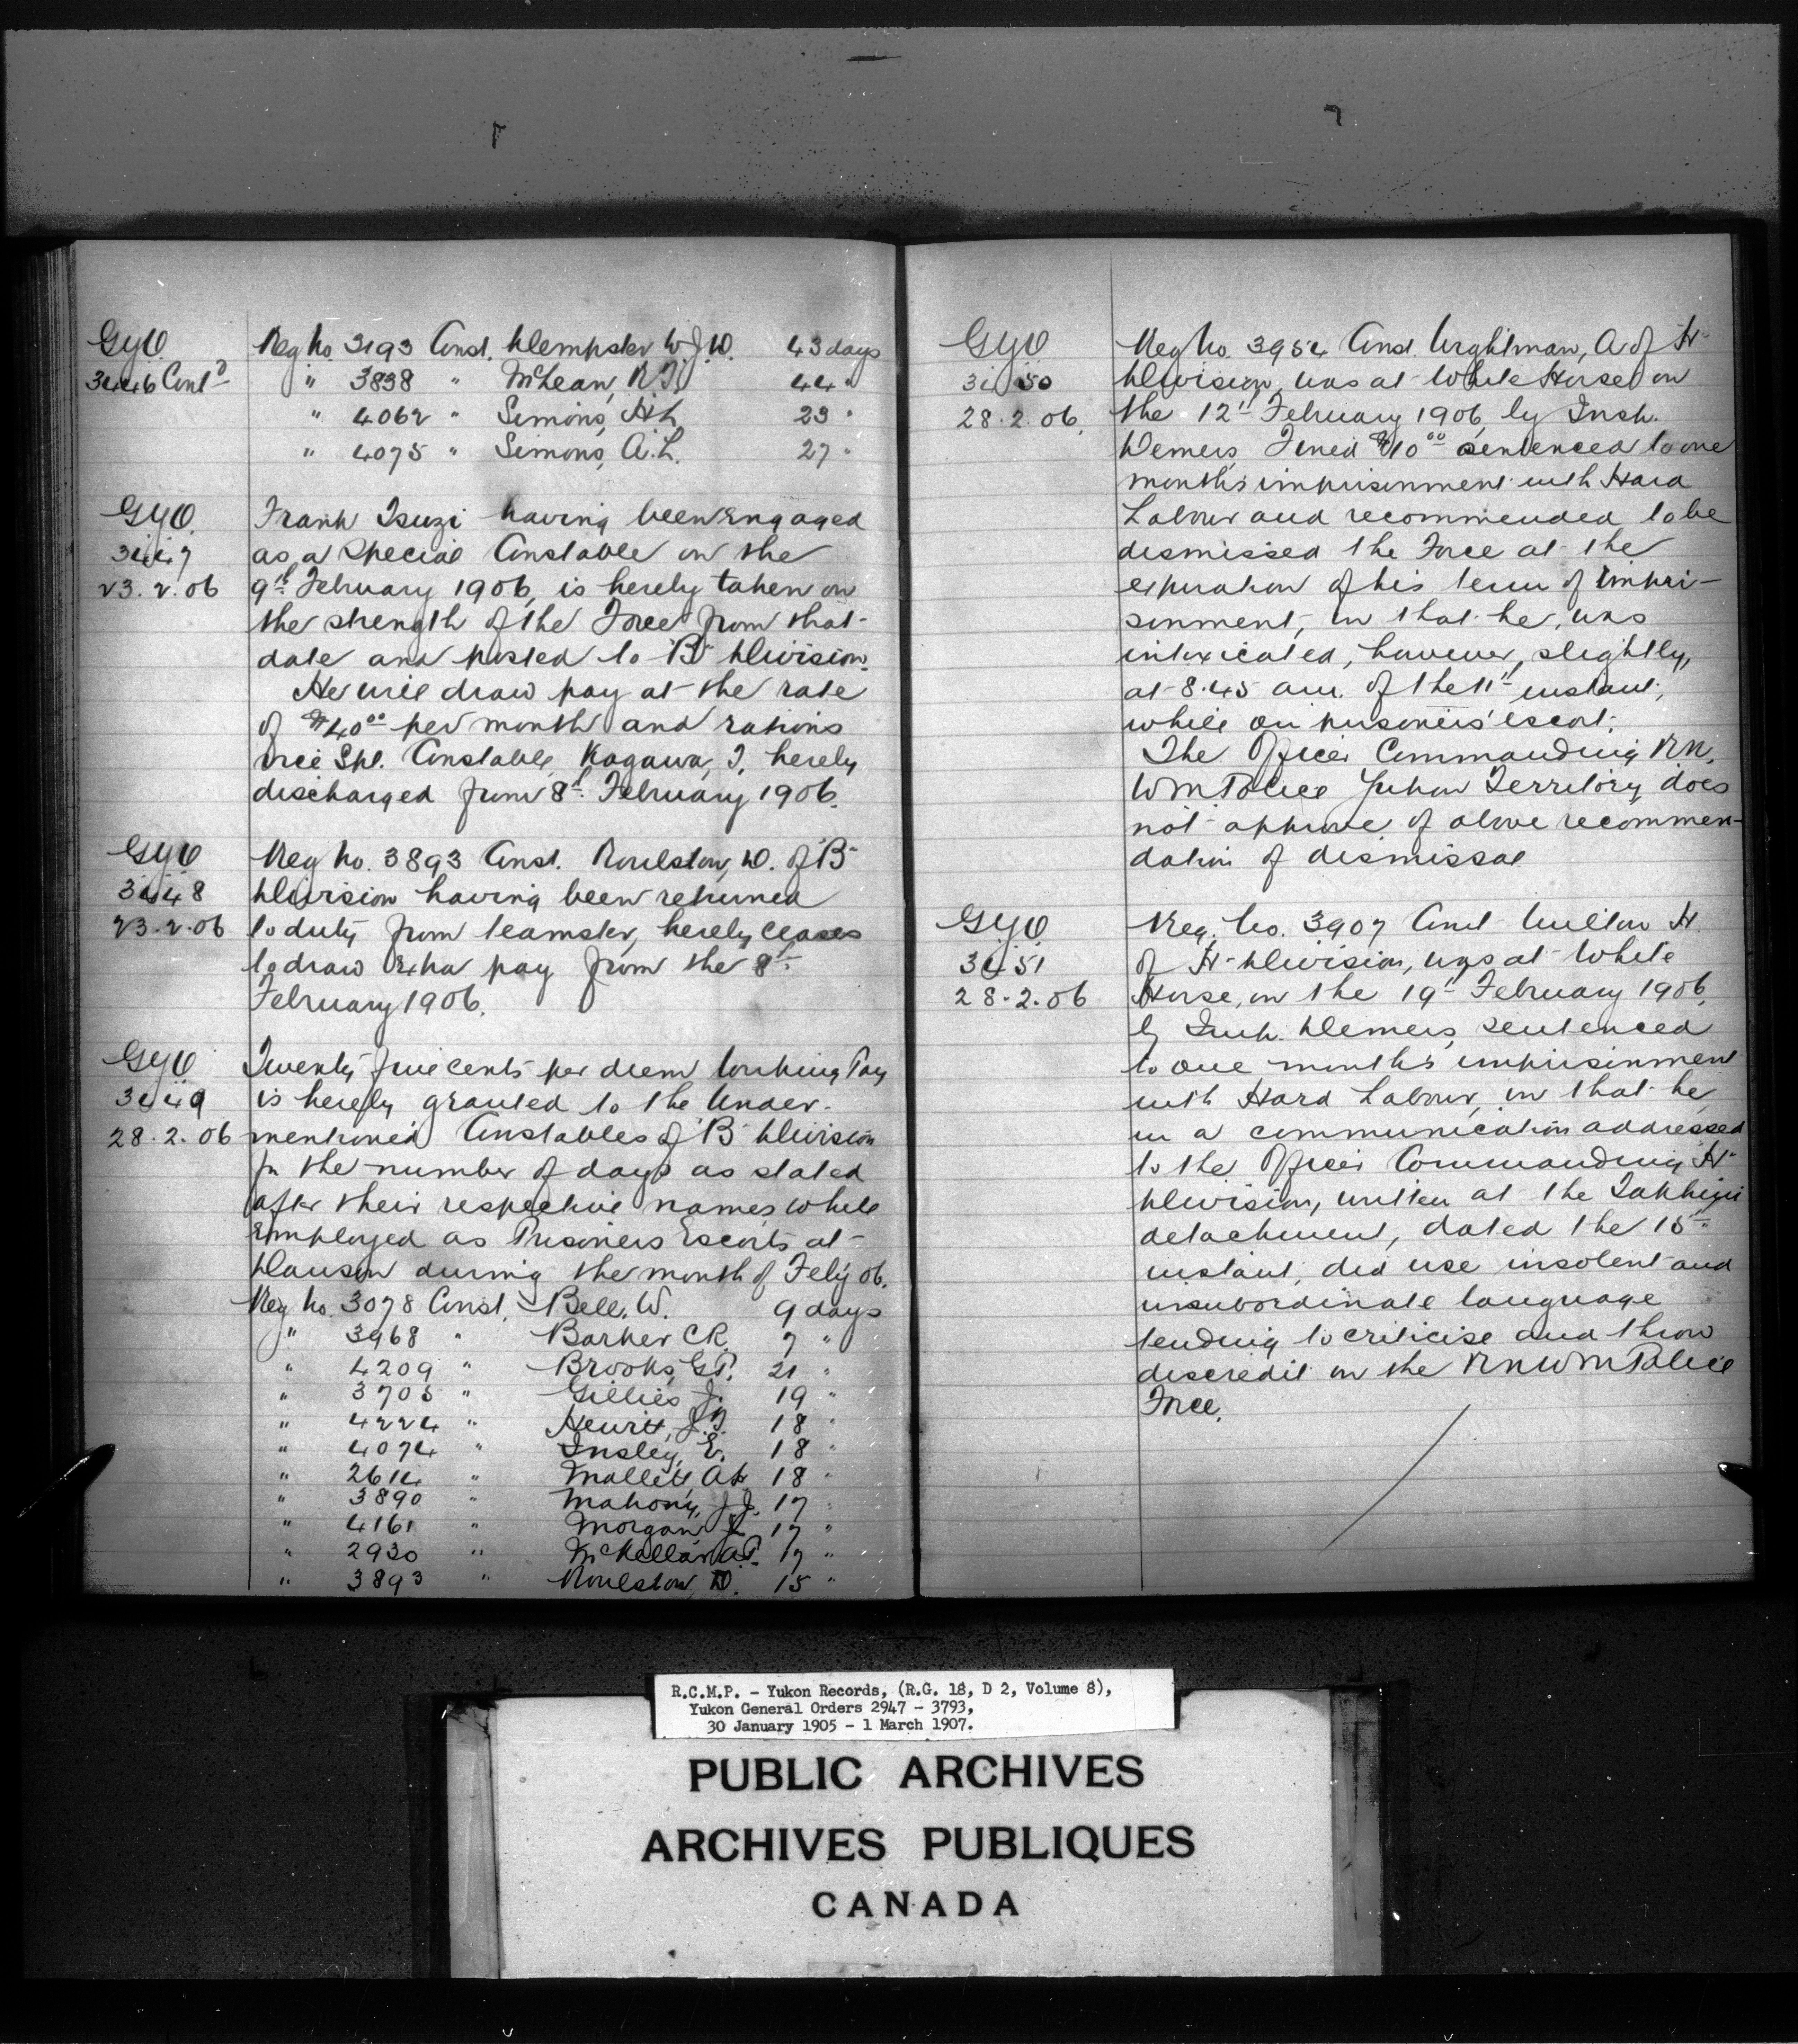 G.Y.O.
3446 Cont'd
Reg No. 3193 Const. Dempster W.J.D. 43 days
" 3838 " McLean, 44 "
" 4062 " Simons, H.L. 23 "
" 4075 " Simons, A.L. 27 "
G.Y.O.
3447
23.2.06
Frank Tsuzi having been engaged
as a Special Constable on the
9th February 1906, is hereby taken on
the strength of the Force from that
date and posted to "B" Division.
He will draw pay at the rate
of $40.00 per month and rations
vice Spl. Constable Kagawa, T, hereby
discharged from 8th February 1906.
G.Y.O.
3448
23.2.06
Reg No. 3893 Const. Roulston, D. of "B"
Division having been returned
to duty from teamster, hereby ceases
to draw Extra pay from the 8th
February 1906.
G.Y.O.
3449
28.2.06
Twenty five cents per diem Working Pay
is hereby granted to the Under-
mentioned Constables of "B" Division
for the number of days as stated
after their respective names while
employed as Prisoners Escorts at
Dawson during the month of Feby 06.
Reg No. 3078 Const. Bell, W. 9 days
" 3968 " Barker C.R. 7 "
" 4209 " Brooks, G.P. 21 "
" 3705 " Gillies J. 19 "
" 4224 " Hewitt, 18 "
" 4074 " Insley, E. 18 "
" 2614 " Mallett 18 "
" 3890 " Mahony, J.J. 17 "
" 4161 " Morgan 17 "
" 2930 " McKellar A.P. 17 "
" 3893 " Roulston, D. 15 "
G.Y.O.
3450
28.2.06.
Reg No. 3954 Const. Wrightman, A of "H"
Division, was at White Horse on
the 12th February 1906, by Insp.
Demers, Fined $10.00 sentenced to one
month's imprisonment with Hard
Labour and recommended to be
dismissed the Force at the
expiration of his term of impri-
sonment, in that he, was
intoxicated, however, slightly,
at 8.45 am. of the 11th instant,
while on prisoners' escort.
The Officer Commanding R.N.
W.M. Police Yukon Territory, does
not approve of above recommen-
dation of dismissal
G.Y.O.
3451
28.2.06
Reg. No. 3907 Const H.
of "H" Division, was at White
Horse, on the 19th February 1906,
by Insp. Demers, sentenced
to one month's imprisonment
with Hard Labour, in that he
in a communication addressed
to the Officer Commanding "H"
Division, written at the Takhini
detachment, dated the 15th
instant, did use insolent and
insubordinate language
tending to criticise and throw
discredit on the R.N.W.M. Police
Force.
R.C.M.P. - Yukon Records, (R.G. 18, D 2, Volume 8),
Yukon General Orders 2947 - 3793,
30 January 1905 - 1 March 1907.
PUBLIC ARCHIVES
ARCHIVES PUBLIQUES
CANADA